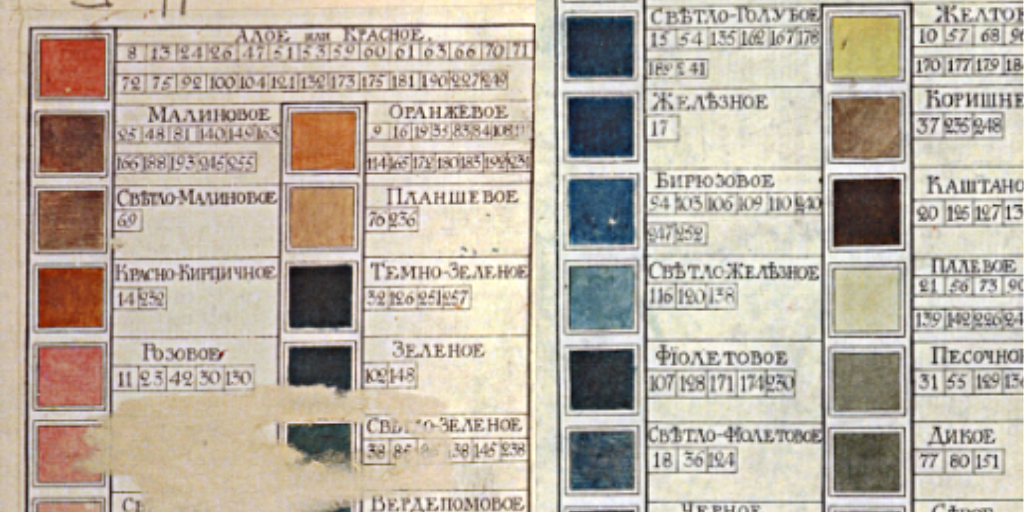 АЛОЕ или КРАСНОЕ.
8 13 24 26 47 51 53 59 60 61 63 66 70 71
72 75 92 100 104 121 132 173 175 181 190 227 249
МАЛИНОВОЕ
25 48 81 140 149 163
166 188 193 245 255
СВѢТЛО-МАЛИНОВОЕ
69
КРАСНО-КИРПИЧНОЕ
14 232
РОЗОВОЕ
11 23 42 30 130
ОРАНЖЕВОЕ
9 16 19 35 83 84 108
114 165 172 180 183 192 231
ПЛАНШЕВОЕ
76 236
ТЕМНО-ЗЕЛЕНОЕ
32 126 251 257
ЗЕЛЕНОЕ
102 148
СВѢТЛО-ЗЕЛЕНОЕ
38 145 238
ВЕРДЕПОМОВОЕ
СВѢТЛО-ГОЛУБОЕ
15 54 135 162 167 178
189 241
ЖЕЛѢЗНОЕ
17
БИРЮЗОВОЕ
94 103 106 109 110 240
247 252
СВѢТЛО-ЖЕЛѢЗНОЕ
116 120 138
ФІОЛЕТОВОЕ
107 128 171 174 230
СВѢТЛО-ФІОЛЕТОВОЕ
18 36 124
ЧЕРНОЕ
ЖЕЛТОЕ
10 57 68 96
170 177 179 18
КОРИШНЕ
37 235 248
КАШТАНО
20 125 127 13
ПАЛЕВОЕ
21 56 73 90
139 142 226 24
ПЕСОЧНО
31 55 129 136
ДИКОЕ
77 80 151